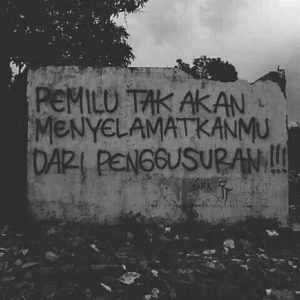 PEMILU TAK AKAN
MENYELAMATKANMU
DARI PENGGUSURAN!!!